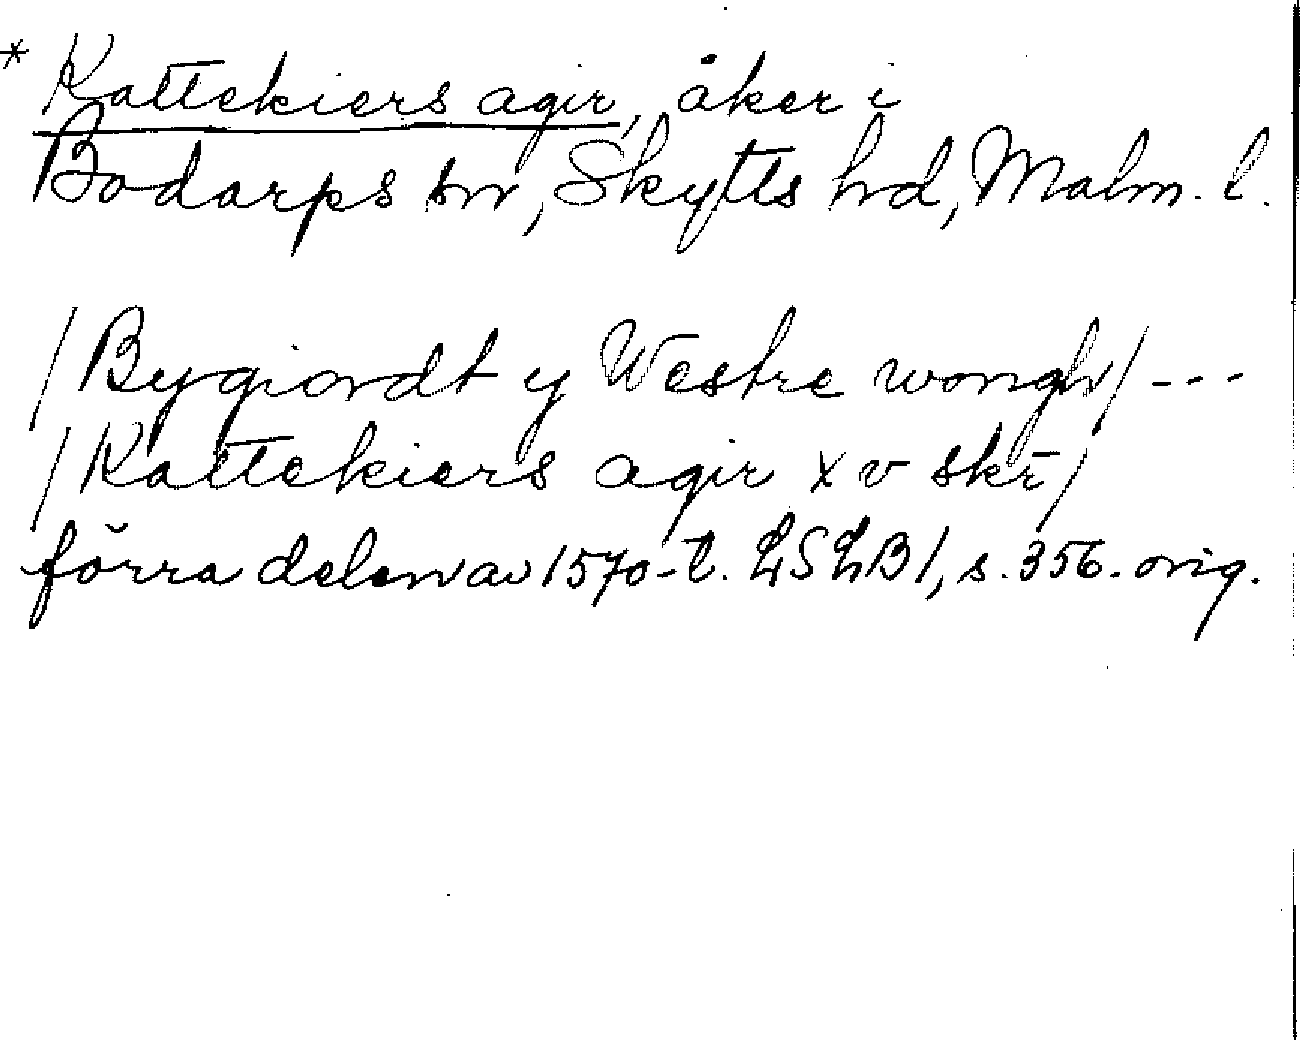 * Kattekiers agir, åker i
Bodarps sn, Skytts hd, Malm. l.
/Bygiordt y Westre wongh/ ---
/Kattekiers agir x v skr/
förra delen av 1570-t. LSLB1, s. 356. orig.